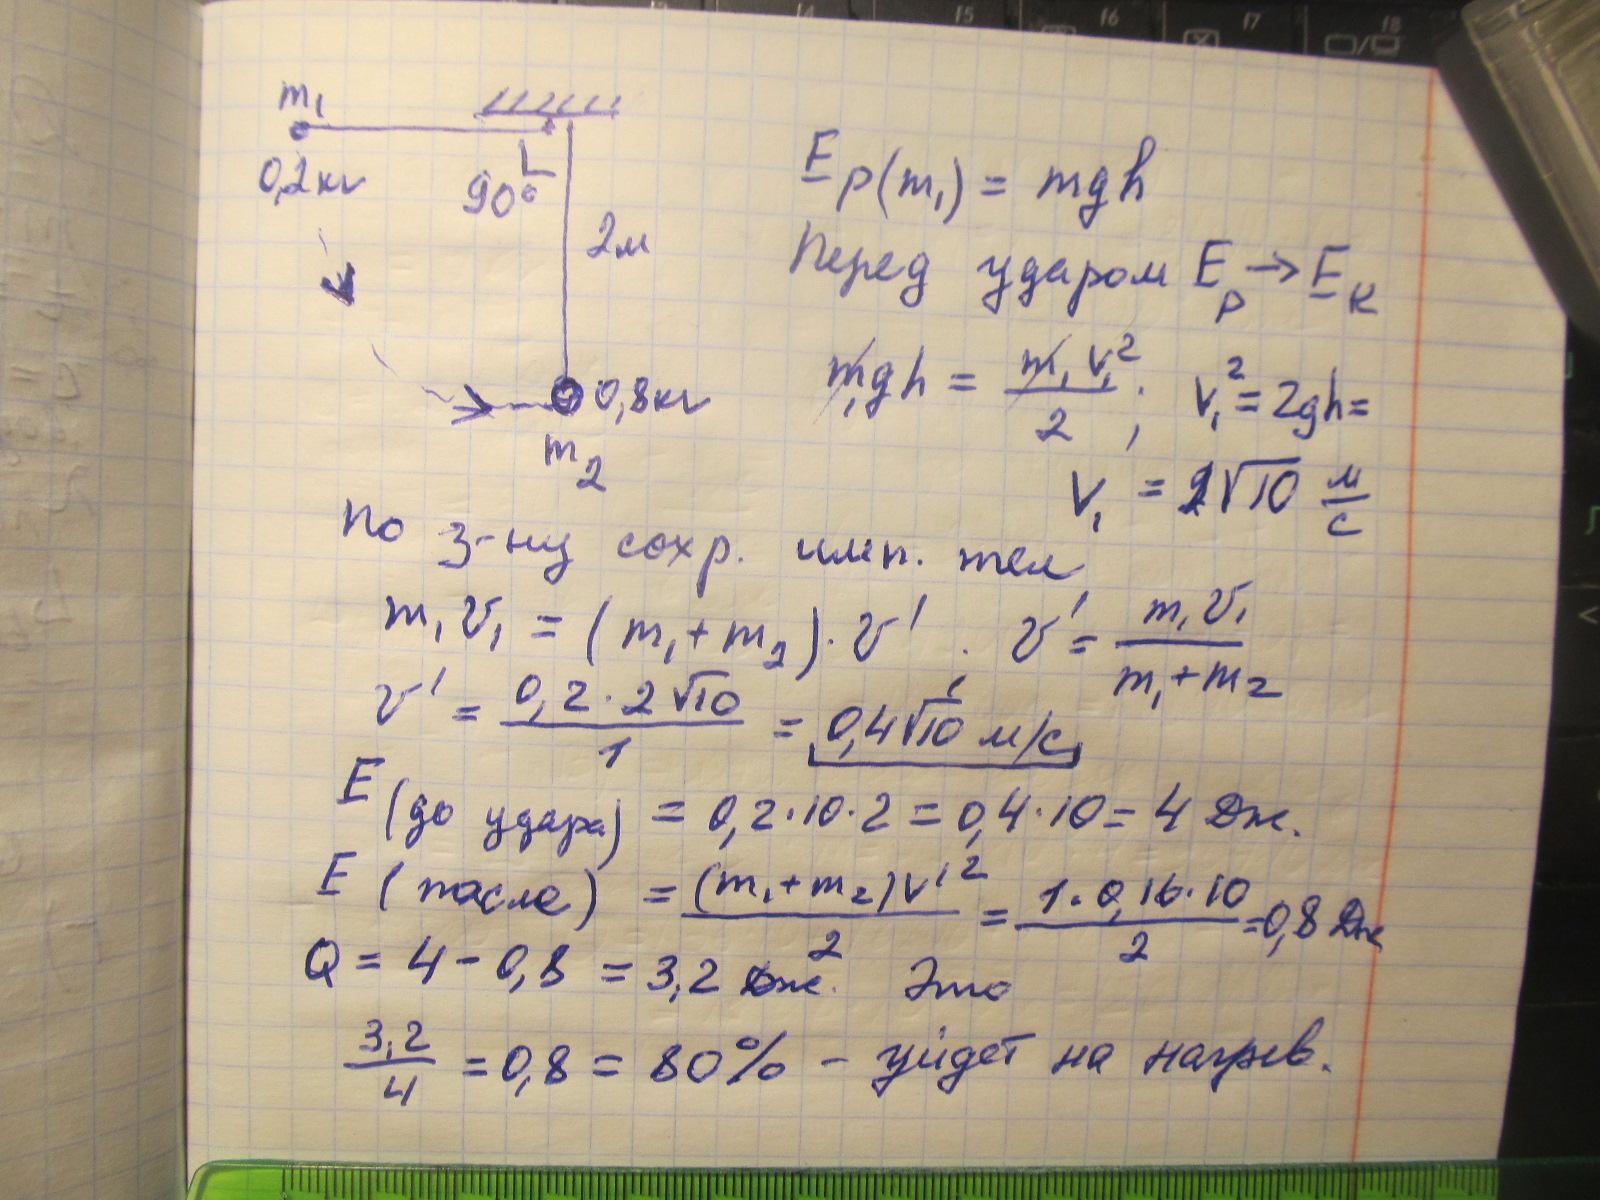 m₁
0,2кг
90°
2м
0,8кг
m₂
Eр(m₁) = mgh
Перед ударом Eр → Eк
m₁gh = m₁v₁²/2 ; v₁² = 2gh =
v₁ = 2√10 м/с
По з-ну сохр. имп. тел
m₁v₁ = (m₁+m₂)·v' . v' = m₁v₁/(m₁+m₂)
v' = 0,2·2√10/1 = 0,4√10 м/с
E (до удара) = 0,2·10·2 = 0,4·10 = 4 Дж.
E (после) = (m₁+m₂)v'²/2 = 1·0,16·10/2 = 0,8 Дж
Q = 4 - 0,8 = 3,2 Дж. Это
3,2/4 = 0,8 = 80% - уйдет на нагрев.
f5
f6
f7
f8